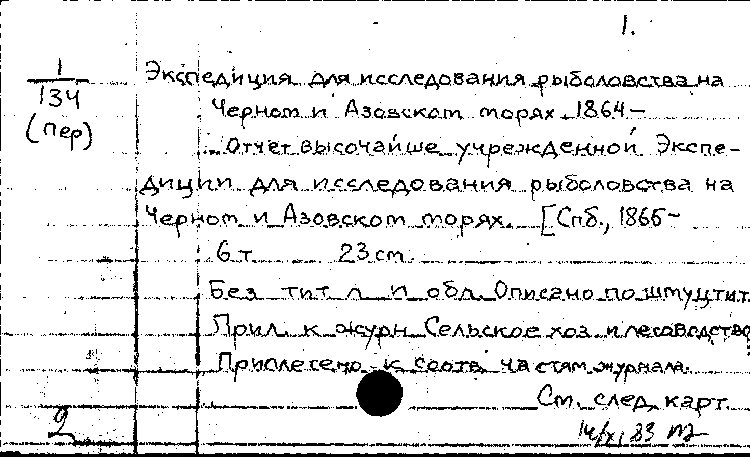 1.
1
134
(пер)
Экспедиция для исследования рыболовства на
Черном и Азовском морях. 1864-
Отчет высочайше учрежденной Экспе-
диции для исследования рыболовства на
Черном и Азовском морях. [Спб., 1865-
6 т. 23 см.
Без тит. л. и обл. Описано по шмуцтит.
Прил. к журн. Сельское хоз. и лесоводство
Приплетено к соотв. частям журнала.
См. след. карт.
2
83